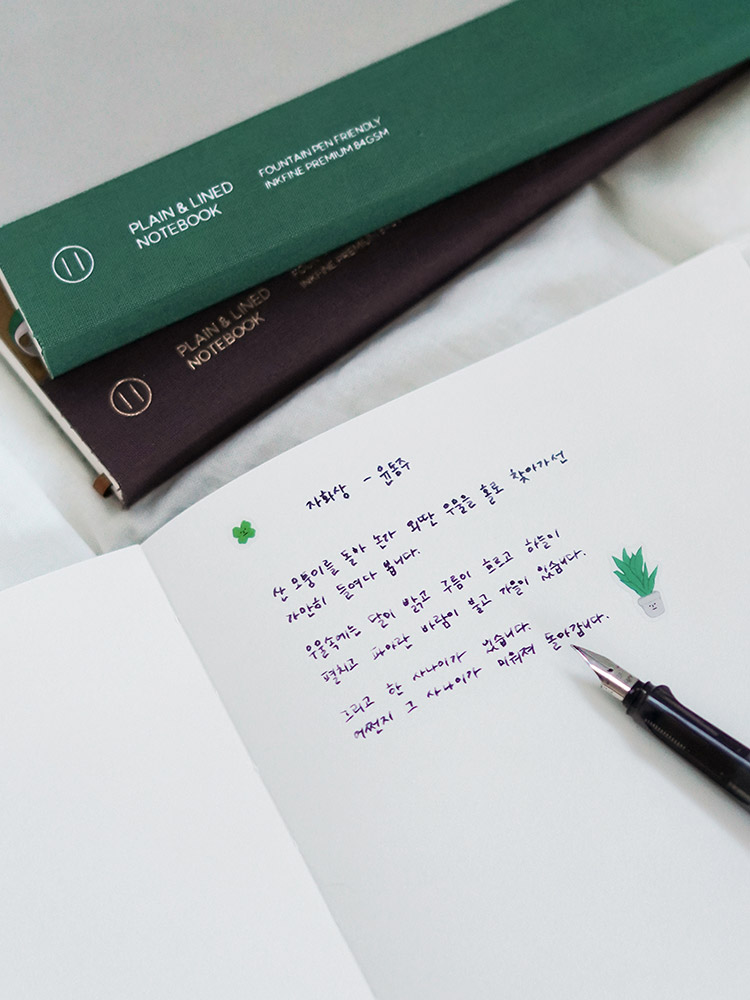 PLAIN & LINED
NOTEBOOK
FOUNTAIN PEN FRIENDLY
INKFINE PREMIUM 84GSM
PLAIN & LINED
NOTEBOOK
INKFINE PREMIUM
자화상 - 윤동주
산 모퉁이를 돌아 논가 외딴 우물을 홀로 찾아가선
가만히 들여다 봅니다.
우물속에는 달이 밝고 구름이 흐르고 하늘이
펼치고 파아란 바람이 불고 가을이 있습니다.
그리고 한 사나이가 있습니다.
어쩐지 그 사나이가 미워져 돌아갑니다.